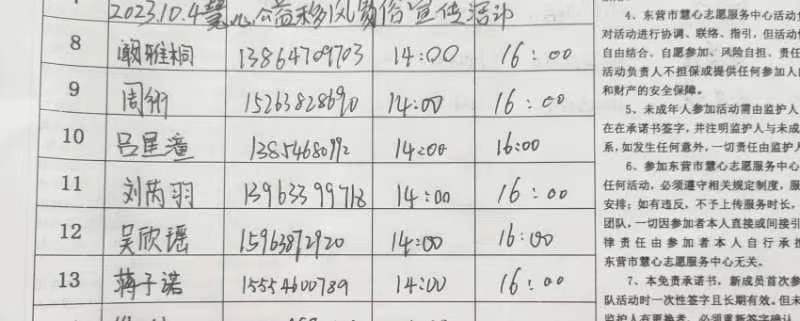 2023.10.4慧心公益移风易俗宣传活动
8 阚雅桐 13864709703 14:00 16:00
9 周翎 15263828690 14:00 16:00
10 吕星潼 13854680992 14:00 16:00
11 刘芮羽 13963399718 14:00 16:00
12 吴欣瑶 15963872920 14:00 16:00
13 蒋子诺 15554600789 14:00 16:00
4、东营市慧心志愿服务中心活动
对活动进行协调、联络、指引，但活动
自由结合、自愿参加、风险自担、责任
活动负责人不担保或提供任何参加人
和财产的安全保障。
5、未成年人参加活动需由监护人
在在承诺书签字，并注明监护人与未成
系，如发生任何意外，一切责任由监护人
6、参加东营市慧心志愿服务中心
任何活动，必须遵守相关规定制度，服
安排；如有违反，不予上传服务时长，
团队，一切因参加者本人直接或间接引
律责任由参加者本人自行承担
东营市慧心志愿服务中心无关。
7、本免责承诺书，新成员首次参
队活动时一次性签字且长期有效。但未
监护人有更换者，必须重新签字确认